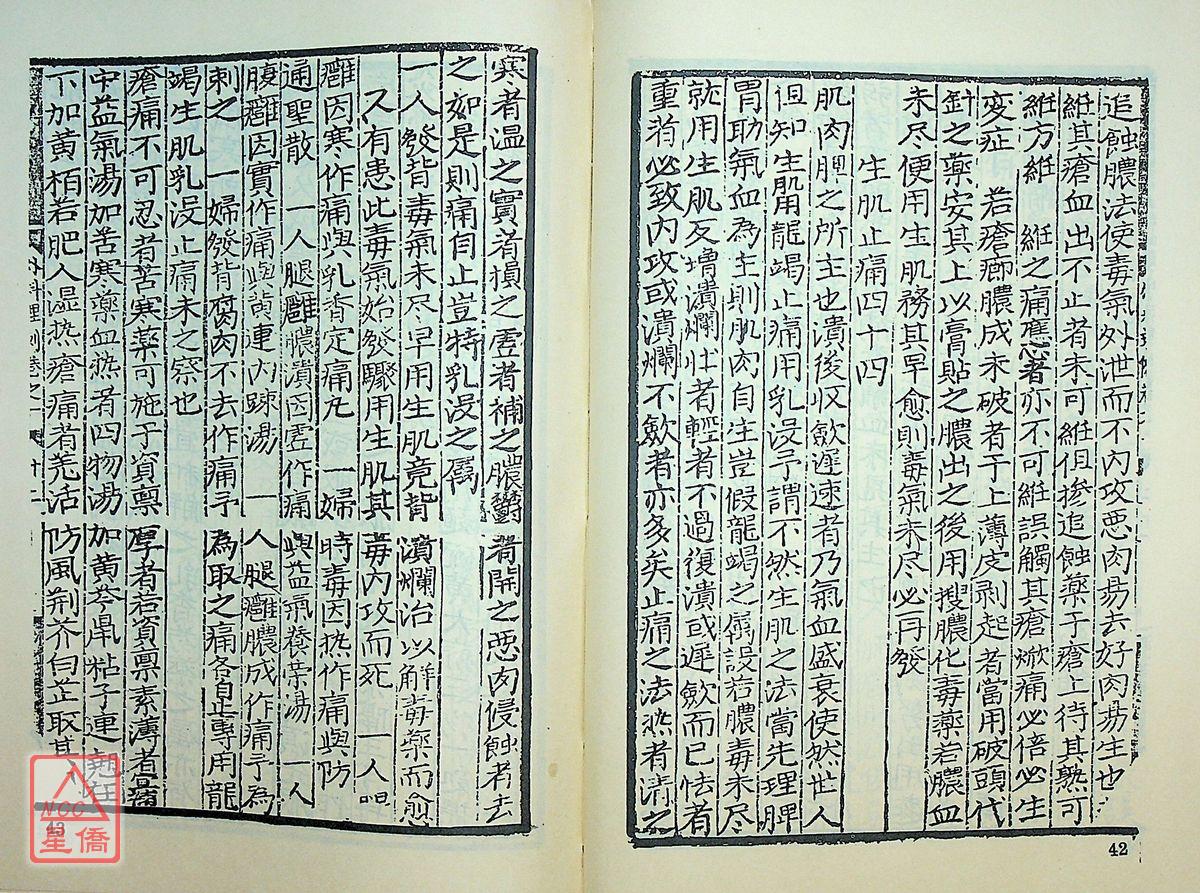 追蝕膿法使毒氣外泄而不内攻悪肉昜去好肉昜生也
維其瘡血出不止者未可維但摻追蝕薬于瘡上待其熟可
維方維 維之痛應心者亦不可維誤觸其瘡焮痛必倍必生
変症 若瘡癤膿成未破者于上薄皮剥起者當用破頭代
針之薬安其上以膏貼之膿出之後用搜膿化毒薬若膿血
未尽便用生肌務其早愈則毒氣未尽必再發
生肌止痛四十四
肌肉脾之所主也潰後收歛遲速者乃氣血盛衰使然世人
但知生肌用龍竭止痛用乳没予謂不然生肌之法當先理脾
胃助氣血為主則肌肉自生豈假龍竭之属設若膿毒未尽
就用生肌反增潰爛壮者輕者不過復潰或遲歛而已怯者
重者必致内攻或潰爛不歛者亦多矣止痛之法热者清之
42
寒者温之實者損之虚者補之膿鬱者開之悪肉侵蝕者去
之如是則痛自止豈特乳没之属
一人發背毒氣未尽早用生肌竟背潰爛治以解毒薬而愈
又有患此毒氣始發驟用生肌其毒内攻而死 一人
癰因寒作痛與乳香定痛丸 一婦時毒因热作痛與防
通聖散 一人腿癰膿潰因虚作痛與益氣養榮湯 一人
腹癰因實作痛與黄連内踈湯 一人腿癰膿成作痛予為
刺之 一婦發背腐肉不去作痛予為取之痛各自止專用龍
竭生肌乳没止痛未之察也
瘡痛不可忍者苦寒薬可施于資禀厚者若資禀素薄者
中益氣湯加苦寒薬血热者四物湯加黄芩鼠粘子連
下加黄栢若肥人湿热瘡痛者羌活防風荆芥白芷取其
外科理例卷之一
43
NCC
星僑